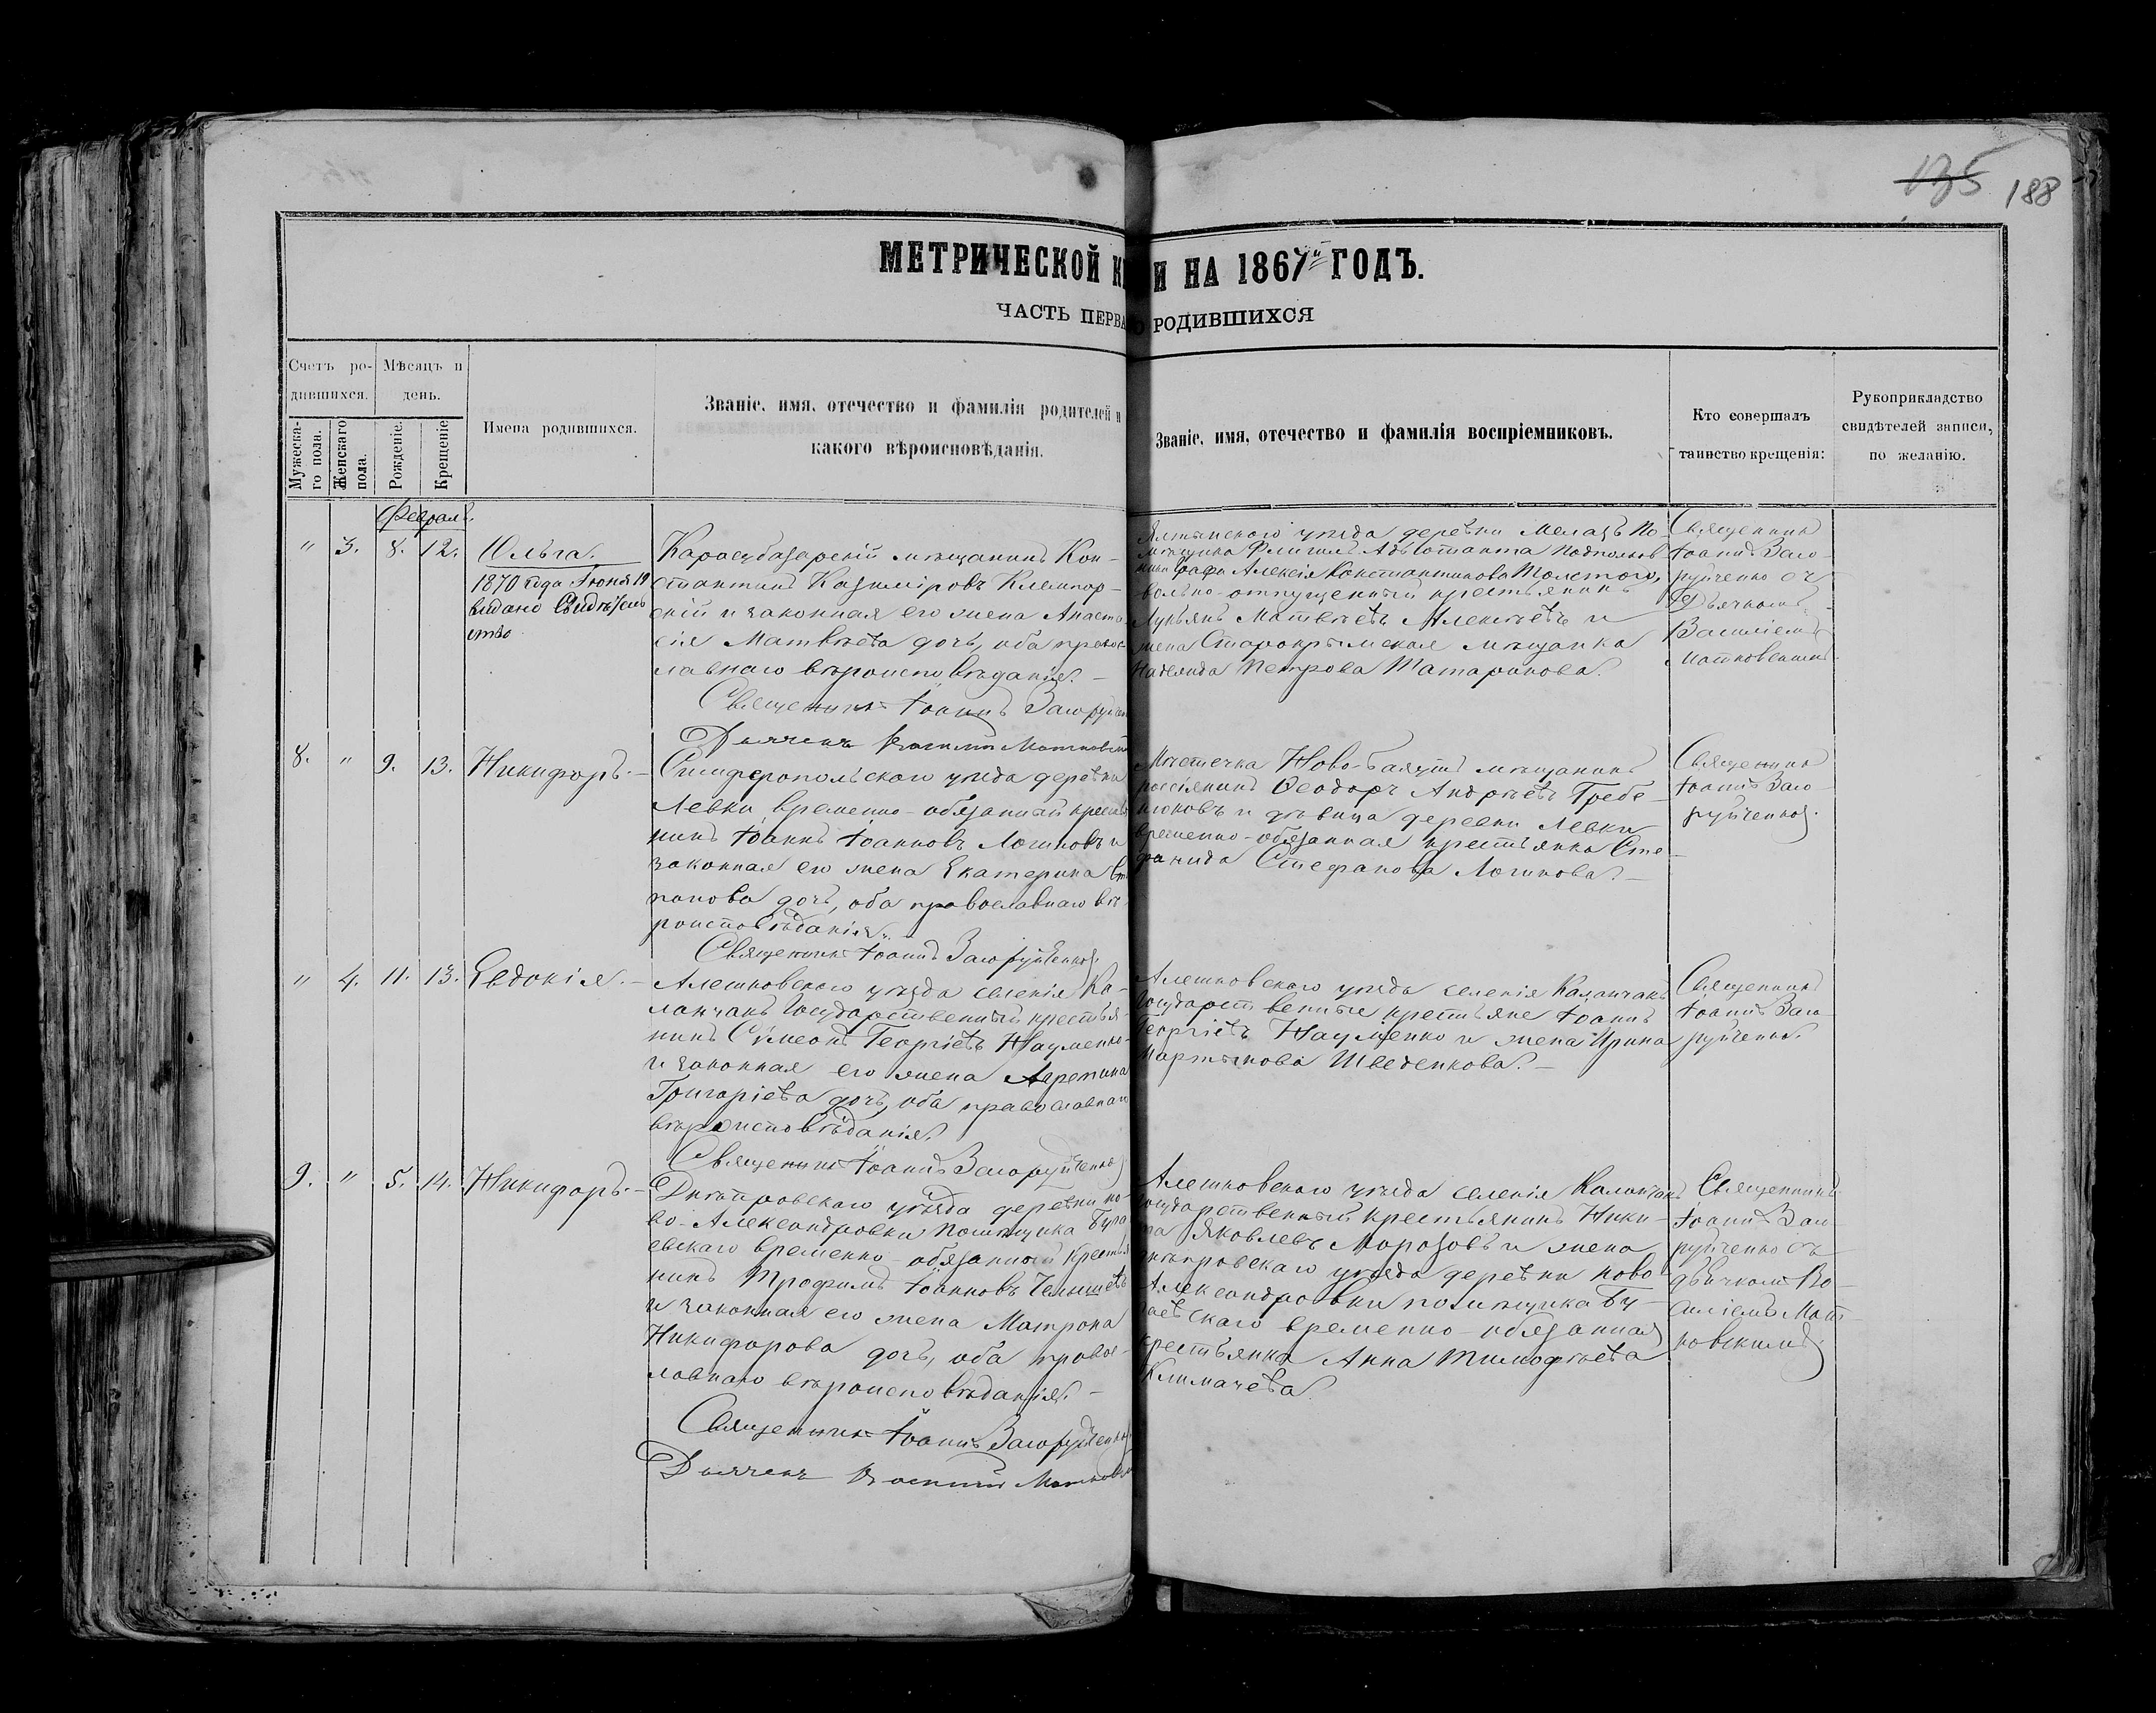 135 188
МЕТРИЧЕСКОЙ К И НА 1867й ГОДЪ.
ЧАСТЬ ПЕРВА О РОДИВШИХСЯ
Счетъ ро-
дившихся.
Мужеска-
го пола.
Женскаго
пола.
Мѣсяцъ и
день.
Рожденіе.
Крещеніе
Имена родившихся.
Званіе, имя, отечество и фамилія родителей и
какого вѣроисповѣданія.
Званіе, имя, отечество и фамилія воспріемниковъ.
Кто совершалъ
таинство крещенія:
Рукоприкладство
свидѣтелей записи,
по желанію.
Февраль.
" 3. 8. 12. Ольга.
1870 года Іюня 19
видано Свидѣтель
ство
Карасубазарскій мѣщанинъ Кон-
стантинъ Казиміровъ
скій и законная его жена Анаста
сія Матвѣева дочь, оба правос-
лавнаго вѣроисповѣданія. –
Священникъ Іоаннъ Загоруйчен
Дьячекъ Василій Матковск
Ялтинскаго уѣзда деревни Меласъ По-
мѣщика Флигель Адъютанта Подполков
ника Графа Алексія Константинова Толстого,
вольно-отпущенный крестьянинъ
Лукьянъ Матвѣевъ Алексѣевъ и
жена Старокрымская мѣщанка
Надежда Петрова Татаринова.
Священникъ
Іоаннъ Заго-
руйченко съ
Дьячкомъ
Василіемъ
Матковскимъ.
8. " 9. 13. Никифоръ. –
Симферопольскаго уѣзда деревни
Левки, временно-обязанный крестья
нинъ Іоаннъ Іоанновъ Логиновъ и
законная его жена Екатерина Сте
панова дочь, оба православнаго вѣ
роисповѣданія.
Священникъ Іоаннъ Загоруйченко.
Мѣстечка Ново-Баязетъ мѣщанинъ
россіянинъ Ѳеодоръ Андрѣевъ Гребе-
нюковъ и дѣвица деревни Левки
временно-обязанная крестьянка Сте-
фанида Стефанова Логинова. –
Священникъ
Іоаннъ Заго-
руйченко.
" 4. 11. 13. Евдокія. –
Алешковскаго уѣзда селенія Ка-
ланчакъ Государственный крестья-
нинъ Сѵмеонъ Георгіевъ Науменко
и законная его жена
Григоріева дочь, оба православнаго
вѣроисповѣданія.
Священникъ Іоаннъ Загоруйченко
Алешковскаго уѣзда селенія Каланчакъ
Государственные крестьяне Іоаннъ
Георгіевъ Науменко и жена Ирина
Мартынова Шведенкова. –
Священникъ
Іоаннъ Заго-
руйченко.
9. " 5. 14. Никифоръ. –
Днѣпровскаго уѣзда деревни но-
во-Александровки помѣщика Буга
евскаго временно-обязанный крестья
нинъ Трофимъ Іоанновъ
и законная его жена Матрона
Никифорова дочь, оба правос-
лавнаго вѣроисповѣданія. –
Священникъ Іоаннъ Загоруйченко
Дьячекъ Василій Матковск
Алешковскаго уѣзда селенія Каланчакъ
Государственный крестьянинъ Ники-
та Яковлевъ Морозовъ и жена
днѣпровскаго уѣзда деревни ново
Александровки помѣщика Бу-
гаевскаго временно-обязанная
крестьянка Анна Тимофѣева
Климачева
Священникъ
Іоаннъ Заго-
руйченко съ
дьячкомъ Ва-
силіемъ Мат-
ковскимъ